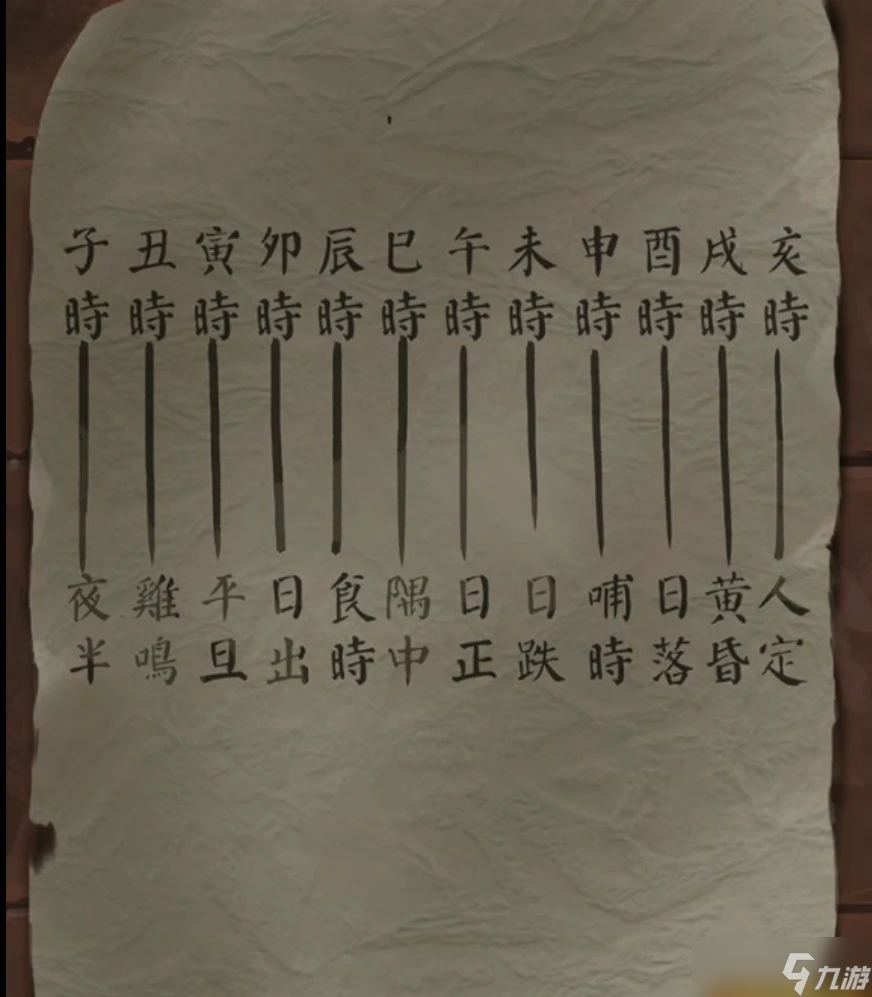 子 丑 寅 卯 辰 巳 午 未 申 酉 戌 亥
時 時 時 時 時 時 時 時 時 時 時 時
夜 雞 平 日 食 隅 日 日 哺 日 黄 人
半 鳴 旦 出 時 中 正 跌 時 落 昏 定
九游